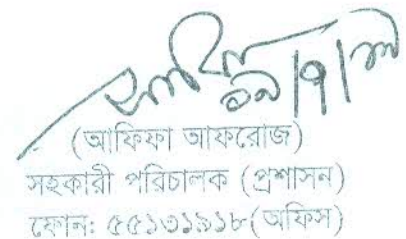 (আফিফা আফরোজ)
সহকারী পরিচালক (প্রশাসন)
ফোন: ৫৫১৩১৯১৮(অফিস)